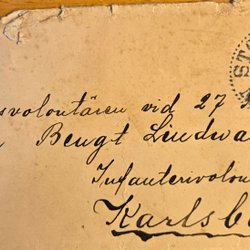 svolontären vid 27
Bengt Lindwa
Infanterivolon
Karlsb
ST